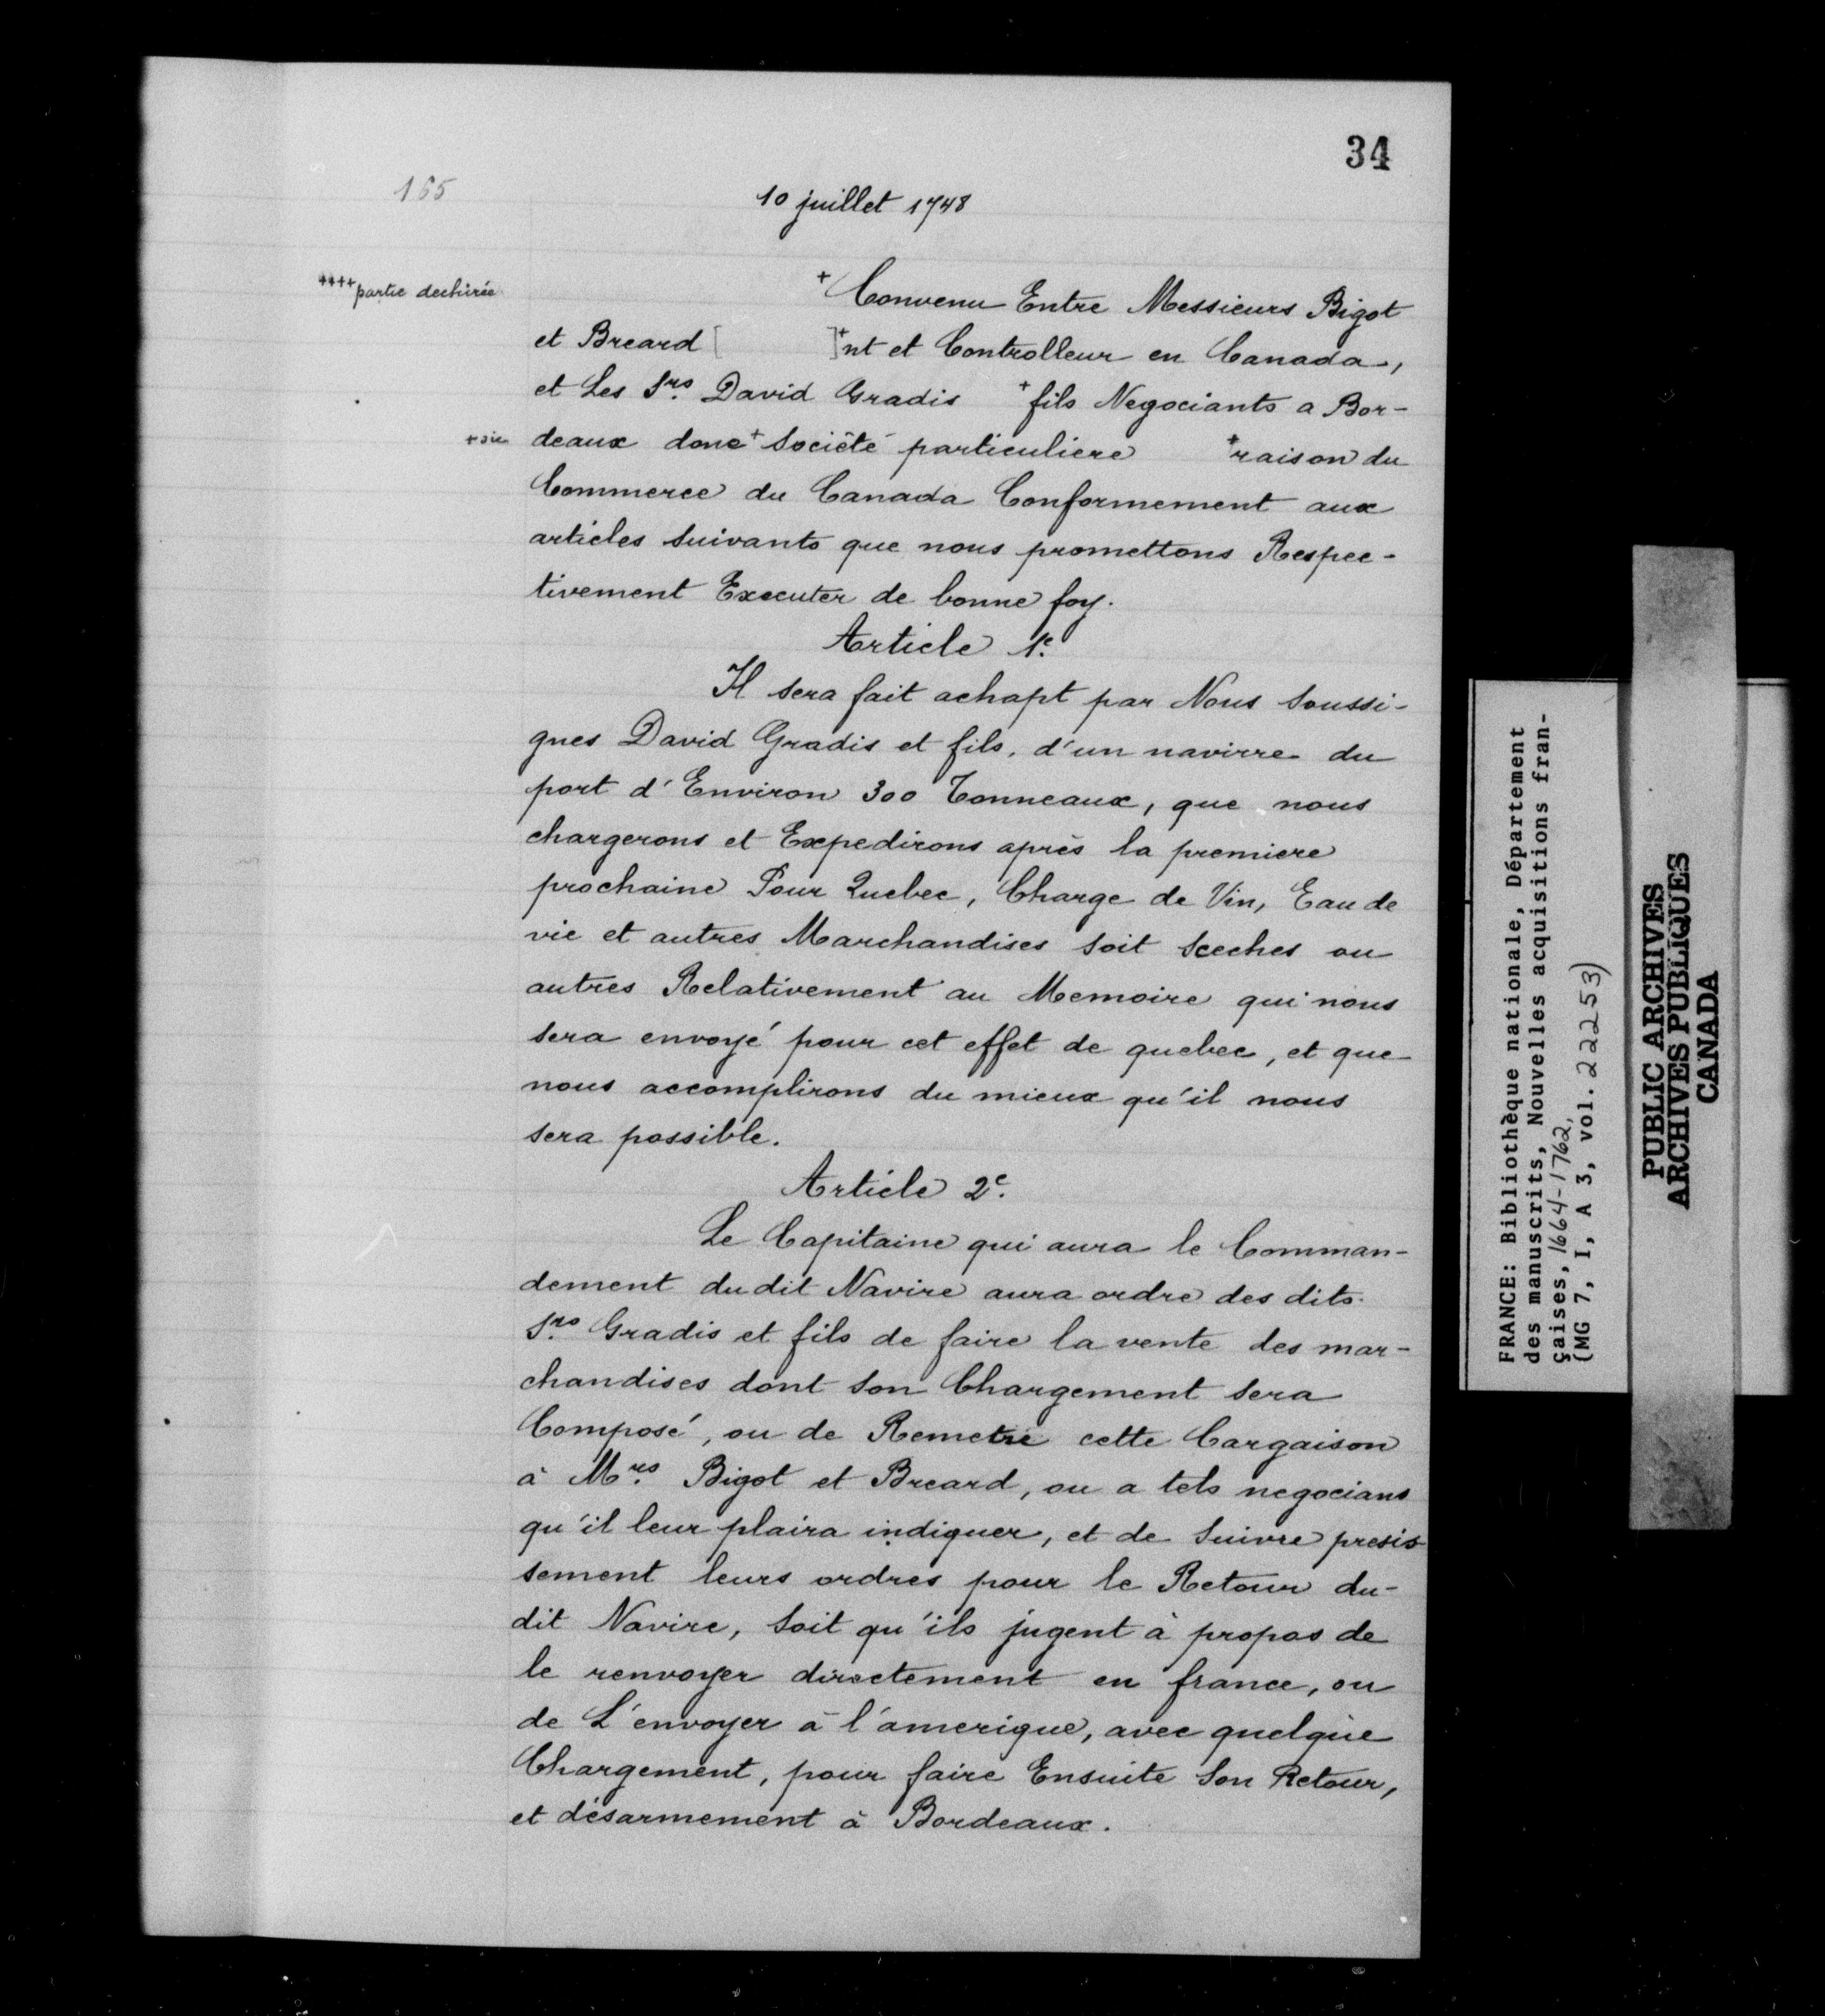 34
165
10 juillet 1748
++++ partie dechirée
+ Convenu Entre Messieurs Bigot
et Breard [ ]+nt et Controlleur en Canada,
et Les Srs. David Gradis + fils Negociants a Bor-
+ sic
deaux donc+ Société particuliere + raison du
Commerce du Canada Conformement aux
articles suivants que nous promettons Respec-
tivement Executer de bonne foy.
Article 1e.
Il sera fait achapt par Nous soussi-
gnes David Gradis et fils, d'un navirre du
port d'Environ 300 Tonneaux, que nous
chargerons et Expedirons après la premiere
prochaine Pour Quebec, Charge de Vin, Eau de
vie et autres Marchandises soit seches ou
autres Relativement au Memoire qui nous
sera envoyé pour cet effet de quebec, et que
nous accomplirons du mieux qu'il nous
sera possible.
Article 2e.
Le Capitaine qui aura le Comman-
dement dudit Navire aura ordre des dits
Srs. Gradis et fils de faire la vente des mar-
chandises dont son Chargement sera
Composé, ou de Remetre cette Cargaison
à Mrs. Bigot et Breard, ou a tels negocians
qu'il leur plaira indiquer, et de suivre presis
sement leurs ordres pour le Retour du-
dit Navire, soit qu'ils jugent à propos de
le renvoyer directement en france, ou
de L'envoyer à l'amerique, avec quelque
Chargement, pour faire Ensuite son Retour,
et désarmement à Bordeaux.
FRANCE: Bibliothèque nationale, Département
des manuscrits, Nouvelles acquisitions fran-
çaises, 1664-1762,
(MG 7, I, A 3, vol. 22253)
PUBLIC ARCHIVES
ARCHIVES PUBLIQUES
CANADA